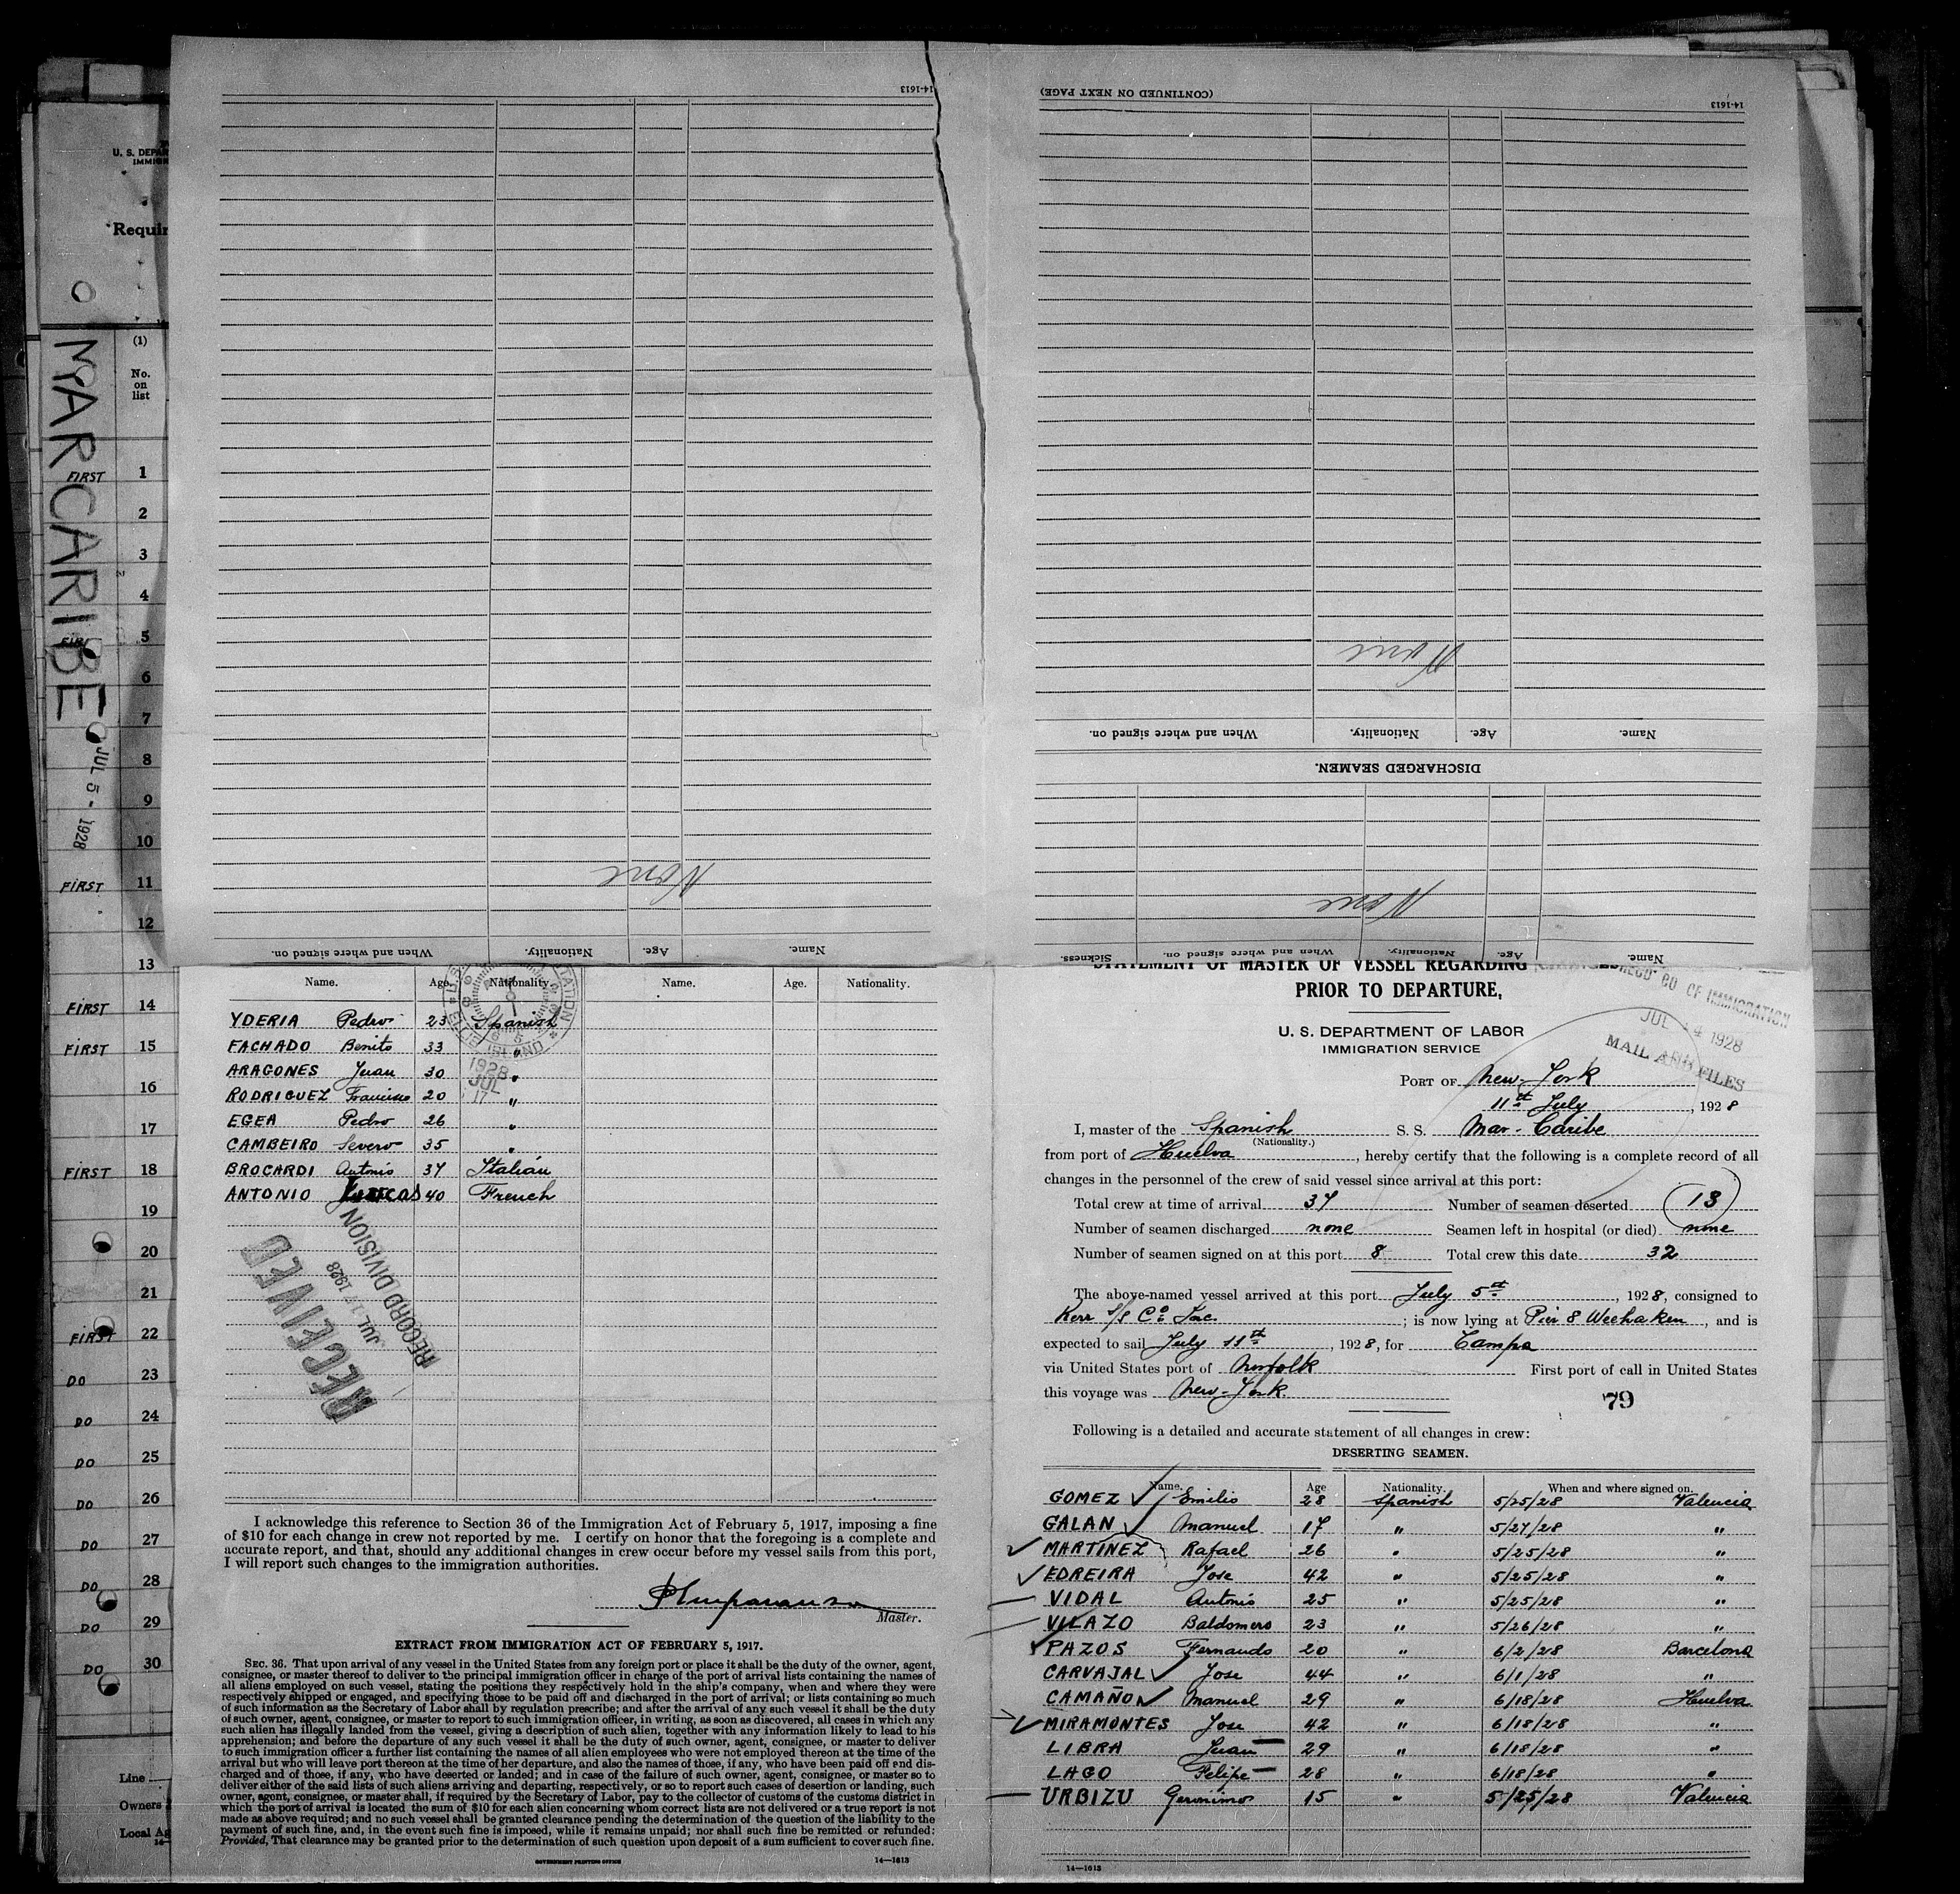 14-1613
(CONTINUED ON NEXT PAGE)
14-1613
U. S. DEPAR
IMMIGR
Requir
MAR CARIBE
JUL 5 - 1928
(1)
No.
on
list
FIRST 1
2
3
4
5
6
7
8
9
10
FIRST 11
12
13
FIRST 14
FIRST 15
16
17
FIRST 18
19
20
21
FIRST 22
DO 23
DO 24
DO 25
DO 26
DO 27
DO 28
DO 29
DO 30
Line
Owners
Local Ag
None
When and where signed on. Nationality. Age. Name.
None
When and where signed on. Nationality. Age. Name.
DISCHARGED SEAMEN.
None
Sickness. When and where signed on. Nationality. Age. Name.
Name. Age. Nationality. Name. Age. Nationality.
YDERIA Pedro 23 Spanish
FACHADO Benito 33 "
ARAGONES Juan 30 "
RODRIGUEZ Francisco 20 "
EGEA Pedro 26 "
CAMBEIRO Severo 35 "
BROCARDI Antonio 37 Italian
ANTONIO Lucas 40 French
1928
JUL
17
RECEIVED
JUL 17 1928
RECORD DIVISION
I acknowledge this reference to Section 36 of the Immigration Act of February 5, 1917, imposing a fine
of $10 for each change in crew not reported by me. I certify on honor that the foregoing is a complete and
accurate report, and that, should any additional changes in crew occur before my vessel sails from this port,
I will report such changes to the immigration authorities.
Master.
EXTRACT FROM IMMIGRATION ACT OF FEBRUARY 5, 1917.
SEC. 36. That upon arrival of any vessel in the United States from any foreign port or place it shall be the duty of the owner, agent,
consignee, or master thereof to deliver to the principal immigration officer in charge of the port of arrival lists containing the names of
all aliens employed on such vessel, stating the positions they respectively hold in the ship's company, when and where they were
respectively shipped or engaged, and specifying those to be paid off and discharged in the port of arrival; or lists containing so much
of such information as the Secretary of Labor shall by regulation prescribe; and after the arrival of any such vessel it shall be the duty
of such owner, agent, consignee, or master to report to such immigration officer, in writing, as soon as discovered, all cases in which any
such alien has illegally landed from the vessel, giving a description of such alien, together with any information likely to lead to his
apprehension; and before the departure of any such vessel it shall be the duty of such owner, agent, consignee, or master to deliver
to such immigration officer a further list containing the names of all alien employees who were not employed thereon at the time of the
arrival but who will leave port thereon at the time of her departure, and also the names of those, if any, who have been paid off and dis-
charged and of those, if any, who have deserted or landed; and in case of the failure of such owner, agent, consignee, or master so to
deliver either of the said lists of such aliens arriving and departing, respectively, or so to report such cases of desertion or landing, such
owner, agent, consignee, or master shall, if required by the Secretary of Labor, pay to the collector of customs of the customs district in
which the port of arrival is located the sum of $10 for each alien concerning whom correct lists are not delivered or a true report is not
made as above required; and no such vessel shall be granted clearance pending the determination of the question of the liability to the
payment of such fine, and, in the event such fine is imposed, while it remains unpaid; nor shall such fine be remitted or refunded:
Provided, That clearance may be granted prior to the determination of such question upon deposit of a sum sufficient to cover such fine.
GOVERNMENT PRINTING OFFICE
14—1613
STATEMENT OF MASTER OF VESSEL REGARDING
PRIOR TO DEPARTURE,
OF IMMIGRATION
JUL 14 1928
MAIL AND FILES
U. S. DEPARTMENT OF LABOR
IMMIGRATION SERVICE
PORT OF New-York
11th July, 1928
I, master of the Spanish S. S. Mar-Caribe
(Nationality.)
from port of Huelva, hereby certify that the following is a complete record of all
changes in the personnel of the crew of said vessel since arrival at this port:
Total crew at time of arrival 37 Number of seamen deserted 13
Number of seamen discharged none Seamen left in hospital (or died) none
Number of seamen signed on at this port 8 Total crew this date 32
The above-named vessel arrived at this port July 5th, 1928, consigned to
Kerr S/S Co Inc.; is now lying at Pier 8 Weehaken, and is
expected to sail July 11th, 1928, for Tampa
via United States port of Norfolk First port of call in United States
this voyage was New-York.
79
Following is a detailed and accurate statement of all changes in crew:
DESERTING SEAMEN.
Name. Age Nationality. When and where signed on.
GOMEZ Emilio 28 Spanish 5/25/28 Valencia
GALAN Manuel 17 " 5/27/28 "
MARTINEZ Rafael 26 " 5/25/28 "
EDREIRA Jose 42 " 5/25/28 "
VIDAL Antonio 25 " 5/25/28 "
VILAZO Baldomero 23 " 5/26/28 "
PAZOS Fernando 20 " 6/2/28 Barcelona
CARVAJAL Jose 44 " 6/1/28 "
CAMAÑO Manuel 29 " 6/18/28 Huelva
MIRAMONTES Jose 42 " 6/18/28 "
LIBRA Juan 29 " 6/18/28 "
LAGO Felipe 28 " 6/18/28 "
URBIZU Geronimo 15 " 5/25/28 Valencia
14—1613